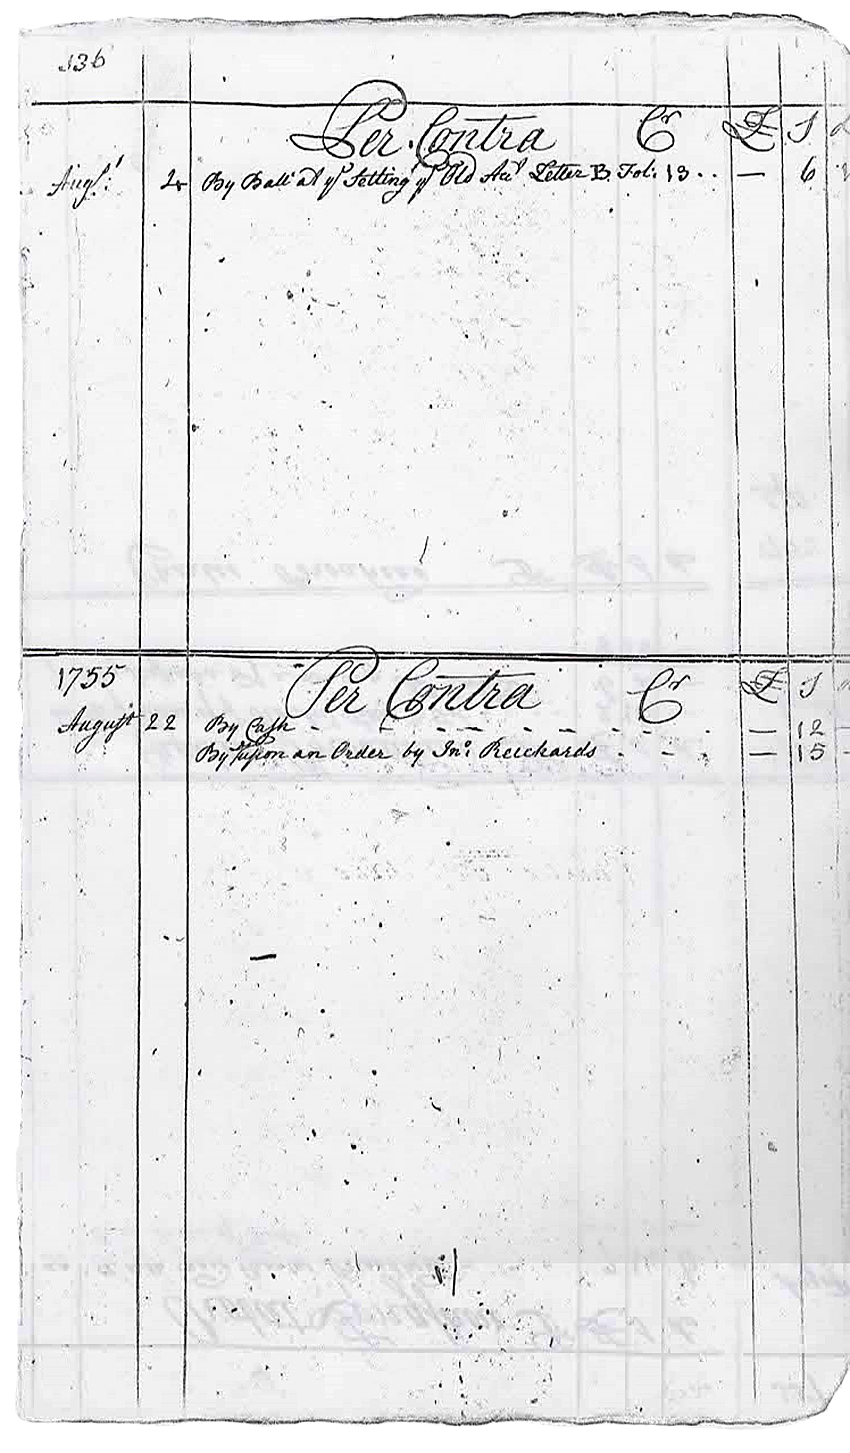 136
Per Contra Cr £ S
Augst: 4 By Ball: at ye Setling ye Old Act Letter B. Fol: 13 . . — 6
1755 Per Contra Cr £ S
August 22 By Cash - - - - - - - - - — 12 -
By upon an Order by Jno: Reichards - - - - — 15 -